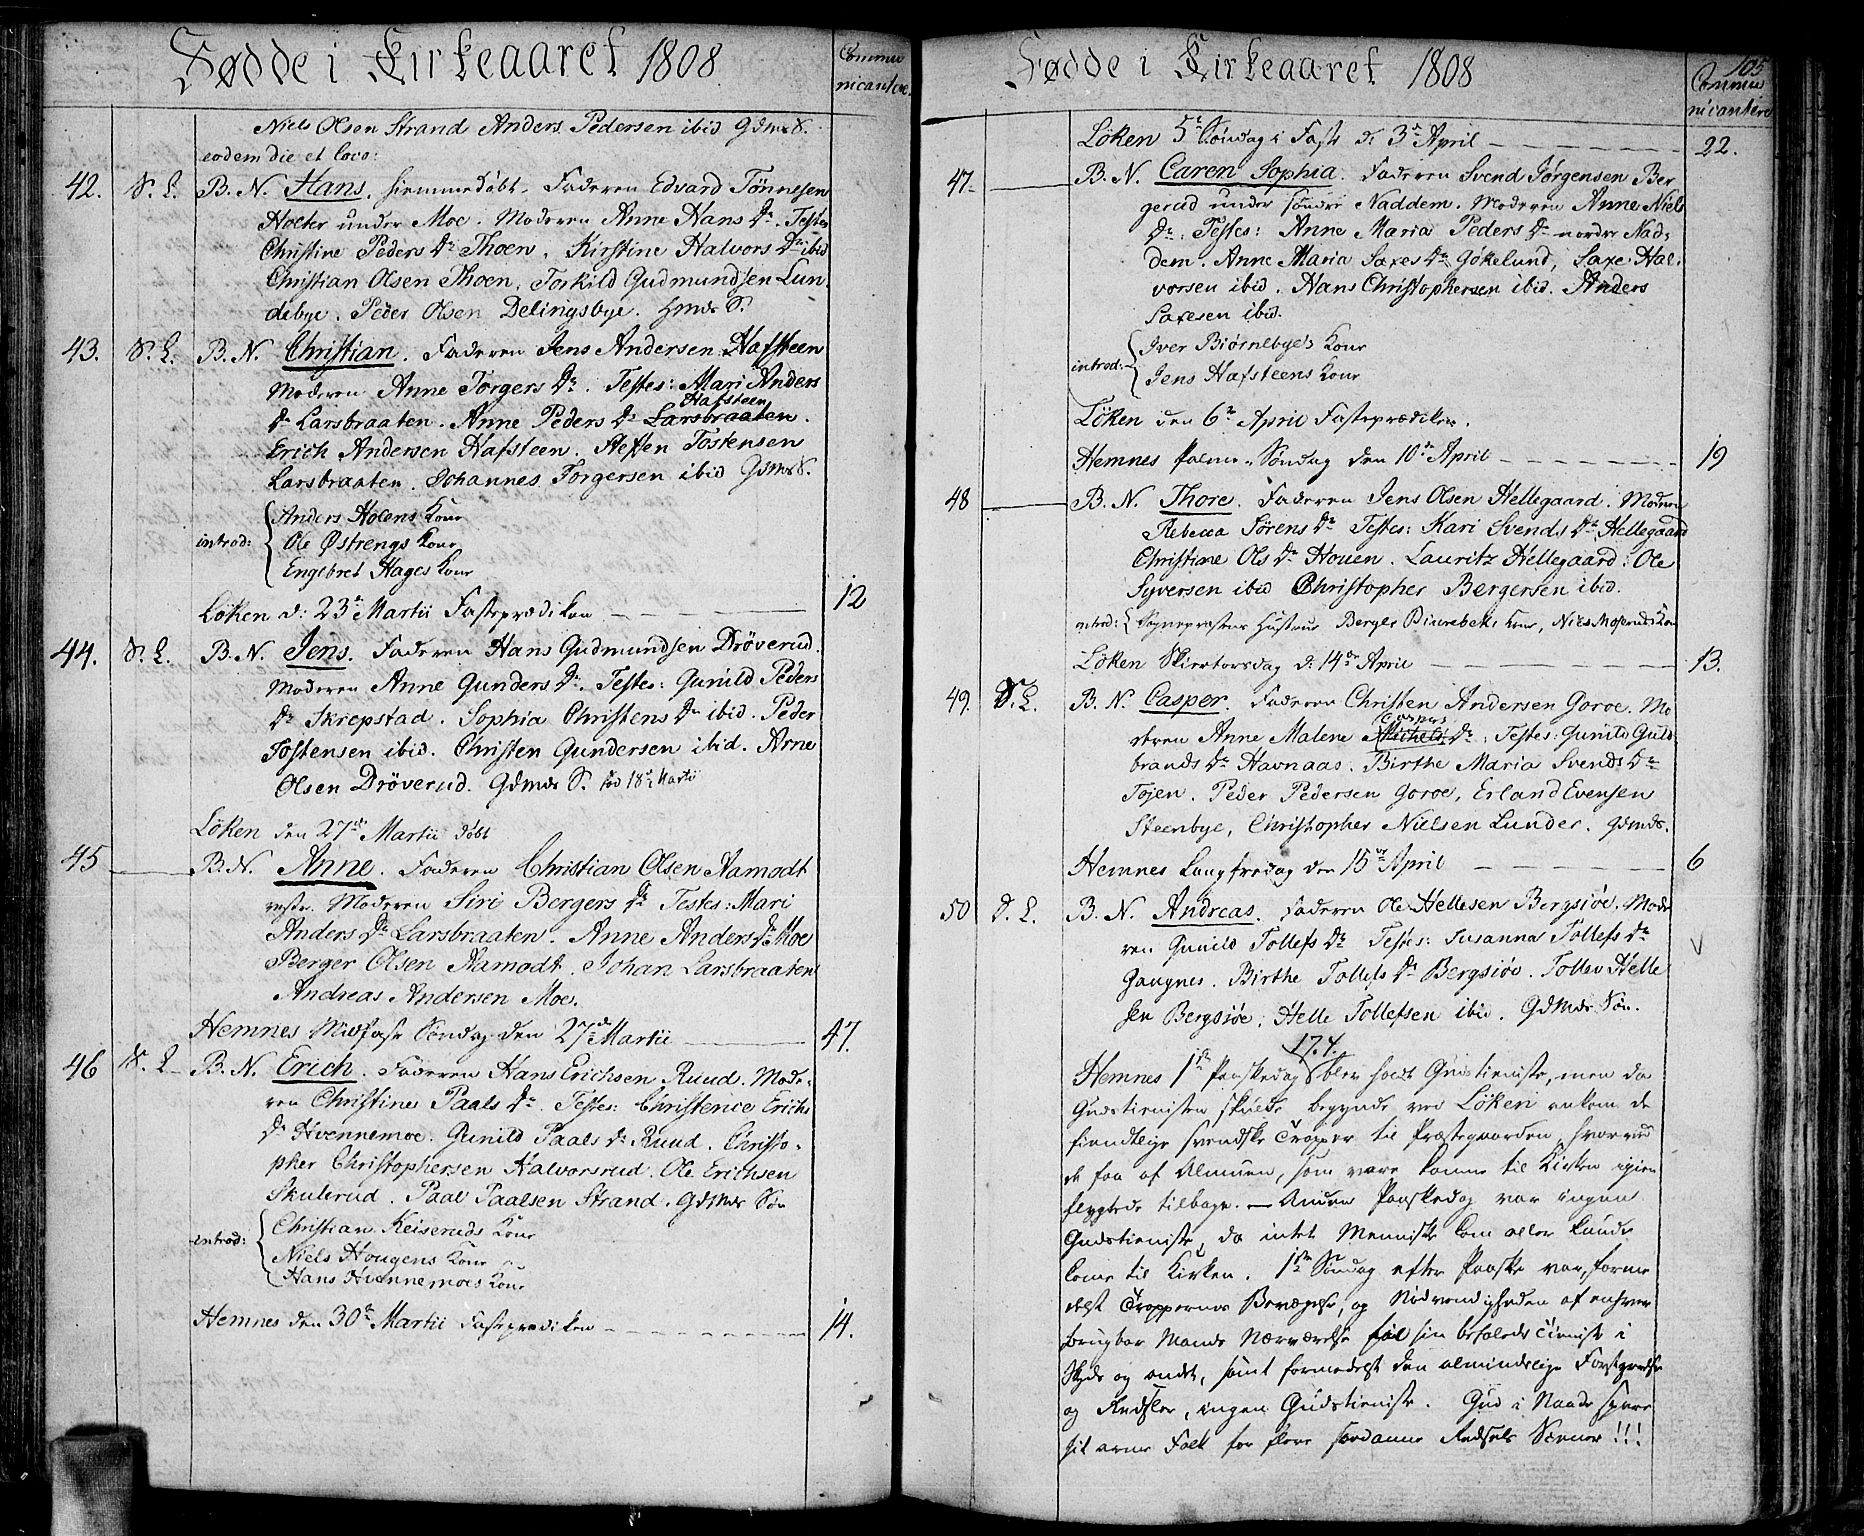 Fødde i Kirkeaaret 1808
Commu
nicantere.
Niels Olsen Strand Anders Pedersen ibid Gdmds S.
eodem die et loco:
42. S. L. B. N. Hans. hiemmedøbt. Faderen Edvard Tönnesen
Holter under Moe. Moderen Anne Hans Dr. Testes
Christine Peders Dr Thoen, Kirstine Halvors Dr ibid
Christian Olsen Thoen, Torkild Gudmundsen Lun
debye. Peder Olsen Delingsbye. Hmds S.
43. S. L. B. N. Christian. Faderen Jens Andersen Hafsteen
Moderen Anne Torgers Dr. Testes: Mari Anders
Hafsteen
Dr Larsbraaten. Anne Peders Dr Larsbraaten.
Erich Andersen Hafsteen. Steffen Tostensen
Larsbraaten. Johannes Torgersen ibid Gdmds S.
Anders Holens Kone
introd: Ole Østrengs Kone
Engebret Hages Kone
Löken d: 23de Martii Fasteprædiken 12
44. S. L. B. N. Jens. Faderen Hans Gudmundsen Dröverud.
Moderen Anne Gunders Dr. Testes: Gunild Peders
Dr Skrepstad. Sophia Christens Dr ibid. Peder
Tostensen ibid. Christen Gundersen ibid. Arne
Olsen Dröverud. Gdmds S. fød 18de Martii
Löken den 27de Martii døbt
45 B. N. Anne. Faderen Christian Olsen Aamodt
vestre. Moderen Siri Bergers Dr Testes: Mari
Anders Dr Larsbraaten. Anne Anders Dr Moe
Berger Olsen Aamodt. Johan Larsbraaten
Andreas Andersen Moe.
Hemnes Midfaste Søndag den 27de Martii 47.
46 S. L. B. N. Erich. Faderen Hans Erichsen Ruud. Mode-
ren Christine Paals Dr. Testes: Christence Erichs
Dr Hvennemoe. Gunild Paals Dr Ruud. Christo-
pher Christophersen Halvorsrud. Ole Erichsen
Skulerud. Paal Paalsen Strand. Gdmds Søn
Christian Keiseruds Kone
introd: Niels Hougens Kone
Hans Hvennemoes Kone
Hemnes den 30te Martii Fasteprædiken 14.
Fødde i Kirkeaaret 1808
105
Commu
nicantere
Löken 5te Søndag i Faste d: 3die April 22.
47. B. N. Caren Sophia. Faderen Svend Jörgensen Ber
gerud under söndre Naddem. Moderen Anne Niels
Dr. Testes: Anne Maria Peders Dr nordre Nad-
dem. Anne Maria Saxes Dr Gökelund, Saxe Hal-
vorsen ibid. Hans Christophersen ibid. Anders
Saxesen ibid.
Iver Biørnebye's Kone
introd: Jens Hafsteens Kone
Löken den 6te April Fasteprædiken.
Hemnes Palme-Søndag den 10de April 19
48 B. N. Thore. Faderen Jens Olsen Hellegaard. Moderen
Rebecca Sörens Dr Testes: Kari Svends Dr Hellegaard
Christine Ols Dr Houen. Lauritz Hellegaard. Ole
Syversen ibid Christopher Bergersen ibid.
introd: Sognepræstens Hustrue Berger Kone, Niels Moseruds Kone
Löken Skiertorsdag d: 14de April 13.
49. S. L. B. N. Casper. Faderen Christen Andersen Goroe. Mo
Caspers
deren Anne Malene Michels Dr. Testes: Gunild Guld
brands Dr Havnaas. Birthe Maria Svends Dr
Tojen. Peder Pedersen Goroe, Erland Evensen
Steenbye, Christopher Nielsen Lunder. Gdmds.
Hemnes Langfredag den 15de April 6
50 S. L. B. N. Andreas. Faderen Ole Hellesen Bergsiöe. Mode
ren Gunild Tollefs Dr Testes: Susanna Tollefs Dr
Gaugnes. Birthe Tollefs Dr Bergsiöe. Tollev Helle
sen Bergsiöe. Helle Tollefsen ibid. Gdmds Søn.
17.4.
Hemnes 1ste Paaskedag blev holdt Gudstieniste, men da
Gudstienisten skulde begynde ved Löken ankom de
fiendtlige svendske Tropper til Præstegaarden, hvorved
de faa af Almuen, som vare komne til Kirken igien
flygtede tilbage. — Anden Paaskedag var ingen
Gudstieniste, da intet Menneske kom eller kunde
komme til Kirken. 1ste Søndag efter Paaske var, forme
delst Troppernes Bevægelse, og Nødvendigheden af enhver
brugbar Mands Nærværelse paa sin befalede Tieneste i
Skyds og andet, samt formedelst den almindelige Forskrækkelse
og Rædsler, ingen Gudstieniste. Gud i Naade spare
sit arme Folk for flere saadanne Rædsels Scener!!!